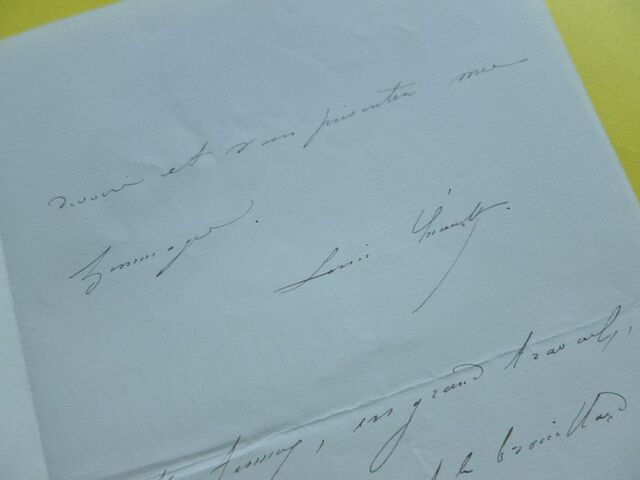 devoir et vous présenter mes
hommages.
Louis
en grand travail,
le brouillard